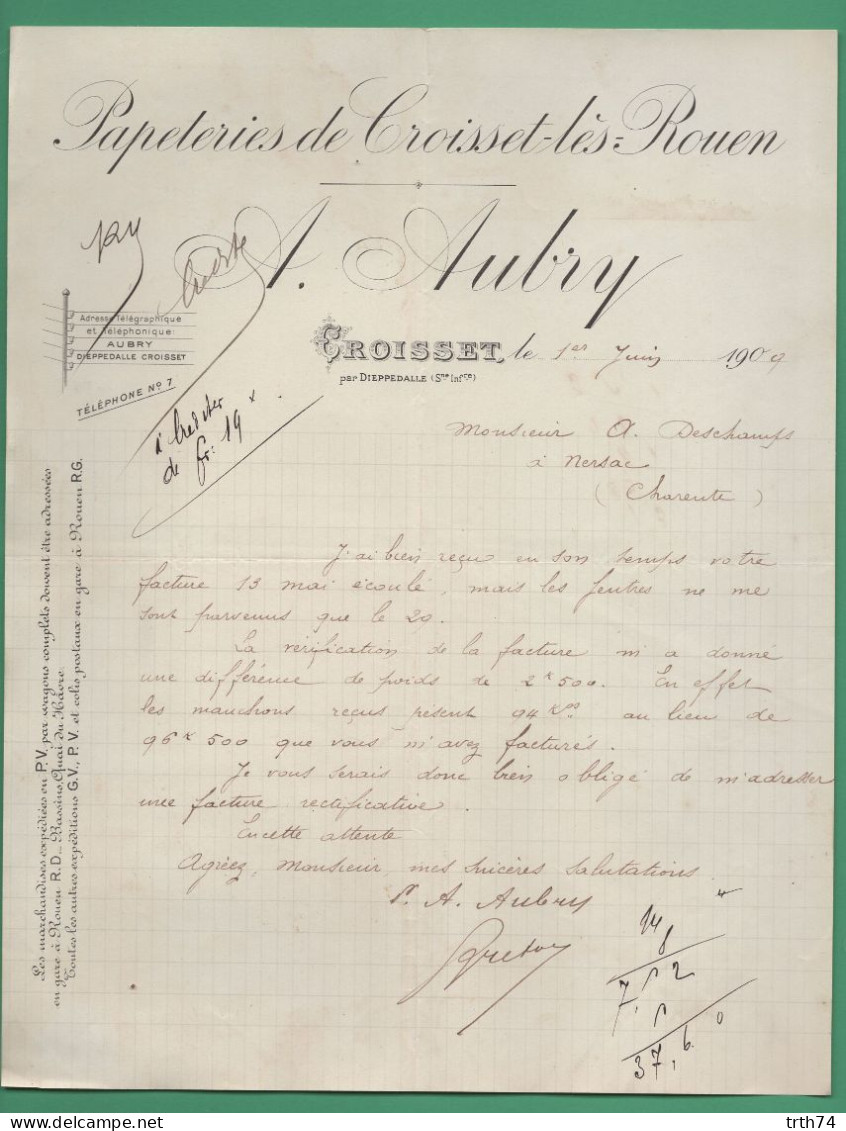 Papeteries de Croisset-lès-Rouen
A. Aubry
Adresse Télégraphique
et Téléphonique:
AUBRY
DIEPPEDALLE CROISSET
TÉLÉPHONE Nº 7
CROISSET, le 1er Juin 1909
par DIEPPEDALLE (Sne Infce)
à créditer
de fr: 19 x
Monsieur A. Deschamps
à Nersac
(Charente)
J'ai bien reçu en son temps votre
facture 13 mai écoulé, mais les feutres ne me
sont parvenus que le 20.
La vérification de la facture m'a donné
une différence de poids de 2k500. En effet
les manchons reçus pèsent 94k00 au lieu de
96k500 que vous m'avez facturés.
Je vous serais donc bien obligé de m'adresser
une facture rectificative.
En cette attente
Agréez, Monsieur, mes sincères salutations.
P. A. Aubry
37,60
Les marchandises expédiées en P.V. par wagons complets doivent être adressées
en gare à Rouen R.D._ Bassins, Quai du Hâvre.
Toutes les autres expéditions G.V., P.V. et colis postaux en gare à Rouen R.G.
trth74